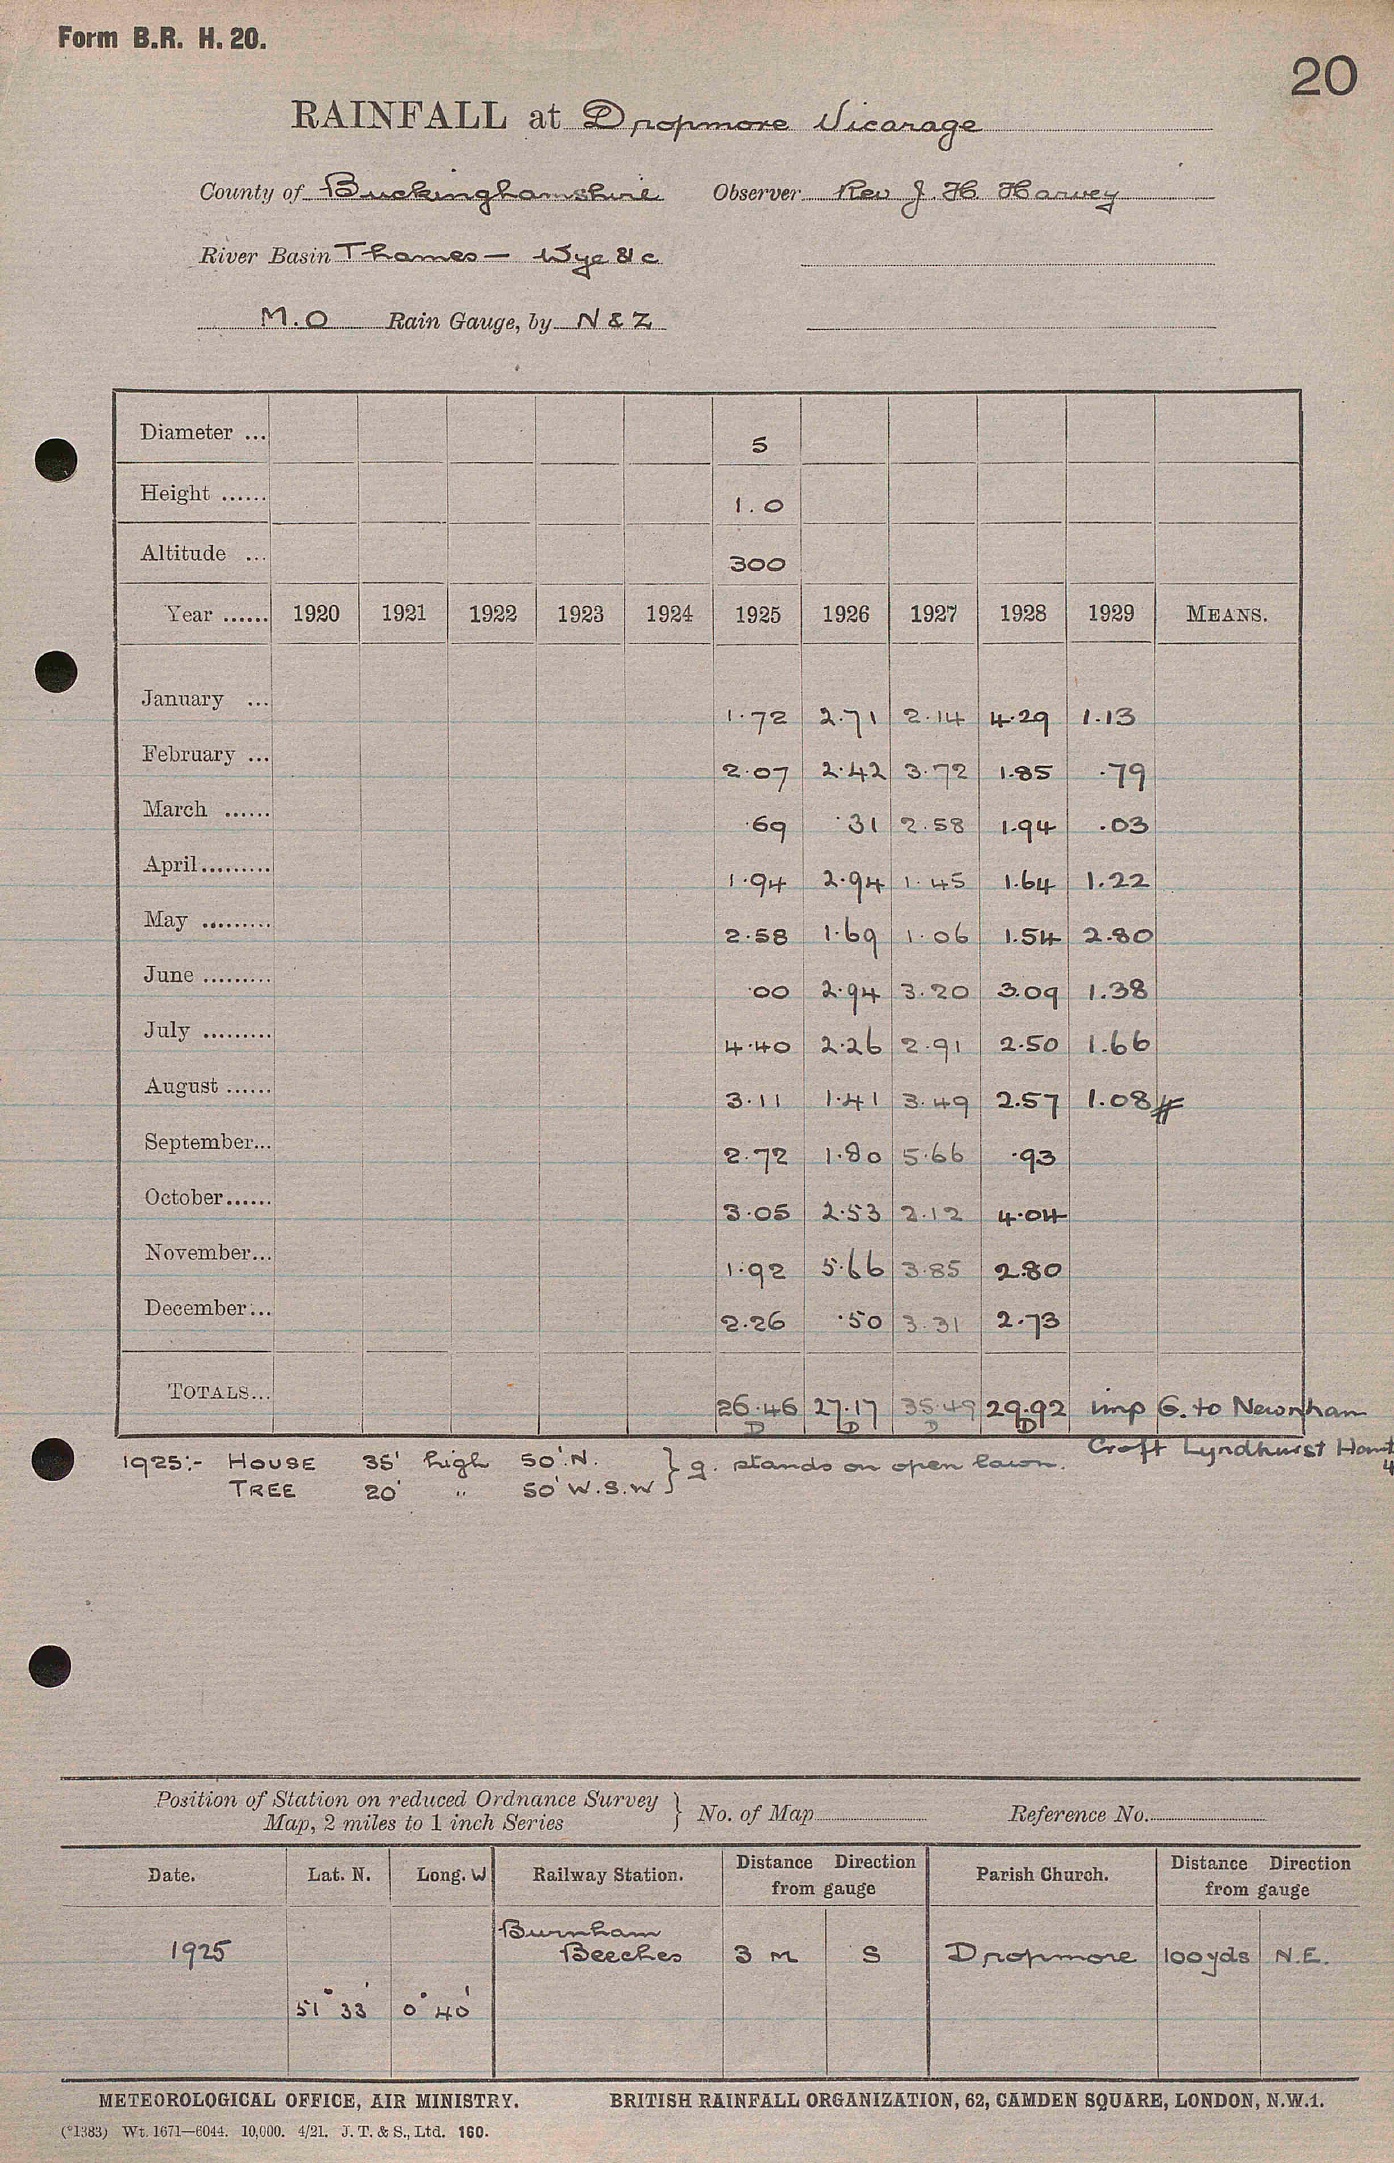 Form B.R. H. 20.
20
RAINFALL at Dropmore Vicarage
County of Buckinghamshire Observer Rev J. H. Harvey
River Basin Thames — Wye & c
M.O Rain Gauge, by N & Z
Diameter ... 5
Height ...... 1.0
Altitude ... 300
Year ...... 1920 1921 1922 1923 1924 1925 1926 1927 1928 1929 MEANS.
January ... 1.72 2.71 2.14 4.29 1.13
February ... 2.07 2.42 3.72 1.85 .79
March ...... .69 .31 2.58 1.94 .03
April......... 1.94 2.94 1.45 1.64 1.22
May ......... 2.58 1.69 1.06 1.54 2.80
June ......... .00 2.94 3.20 3.09 1.38
July ......... 4.40 2.26 2.91 2.50 1.66
August ...... 3.11 1.41 3.49 2.57 1.08
September... 2.72 1.80 5.66 .93
October...... 3.05 2.53 2.12 4.04
November... 1.92 5.66 3.85 2.80
December... 2.26 .50 3.31 2.73
TOTALS... 26.46 27.17 35.49 29.92 imp G. to Newnham
D D D D Croft Lyndhurst Hant
1925:- HOUSE 35' high 50'.N. } g. stands on open lawn.
TREE 20' " 50' W.S.W }
Position of Station on reduced Ordnance Survey
Map, 2 miles to 1 inch Series } No. of Map Reference No.
Date. Lat. N. Long. W Railway Station. Distance Direction from gauge Parish Church. Distance Direction from gauge
1925 Burnham Beeches 3 m S Dropmore 100yds N.E.
51° 33' 0° 40'
METEOROLOGICAL OFFICE, AIR MINISTRY. BRITISH RAINFALL ORGANIZATION, 62, CAMDEN SQUARE, LONDON, N.W.1.
(°1383) Wt. 1671—6044. 10,000. 4/21. J. T. & S., Ltd. 160.